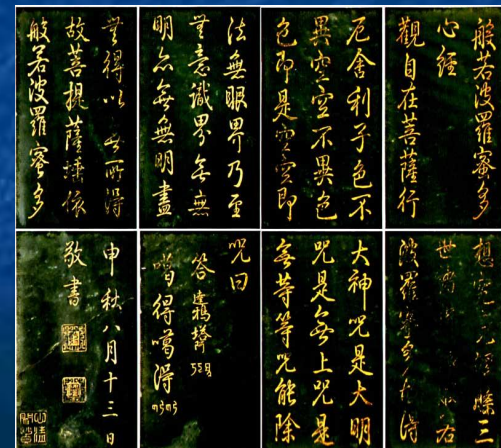 般若波羅蜜多
心經
觀自在菩薩行
厄舍利子色不
異空空不異色
色即是空空即
法無眼界乃至
無意識界無無
明亦無無明盡
無得以無所得
故菩提薩埵依
般若波羅蜜多
想究竟涅槃三
世諸 般若
波羅蜜多故得
大神呪是大明
呪是無上呪是
無等等呪能除
呪曰
答達鴉
得噶得
申秋八月十三日
敬書